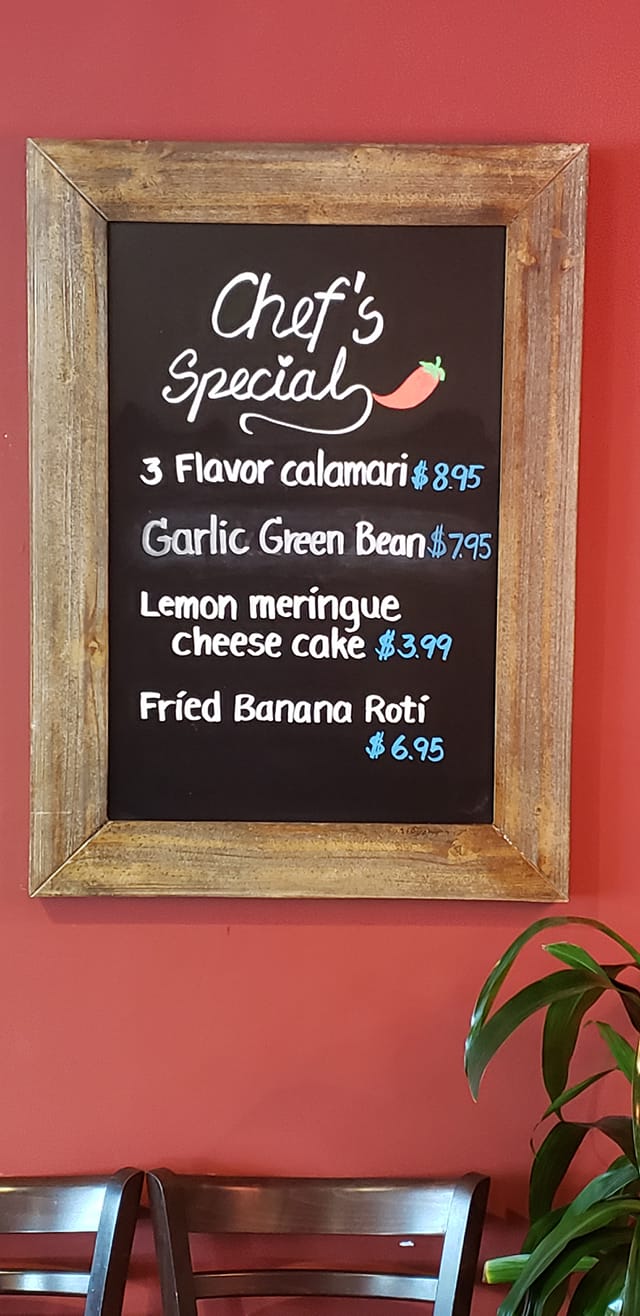 Chef's
Special
3 Flavor calamari $8.95
Garlic Green Bean $7.95
Lemon meringue
cheese cake $3.99
Fried Banana Roti
$6.95